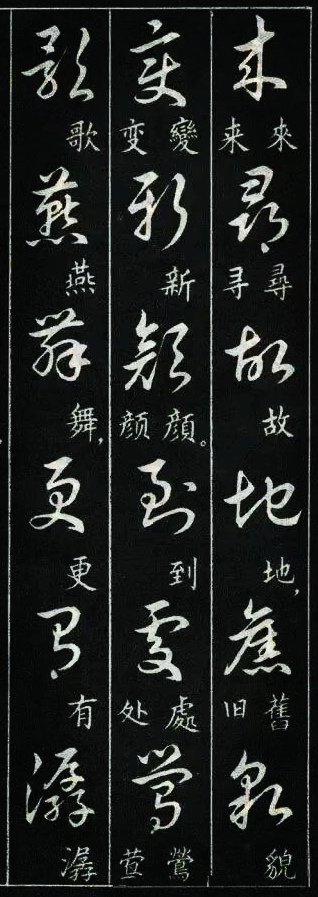 來 來来
尋 尋寻
故 故
地 地，
舊 舊旧
貌 貌
變 變变
新 新
顔 顔颜。
到 到
處 處处
鶯 鶯
歌 歌
燕 燕
舞 舞，
更 更
有 有
潺 潺